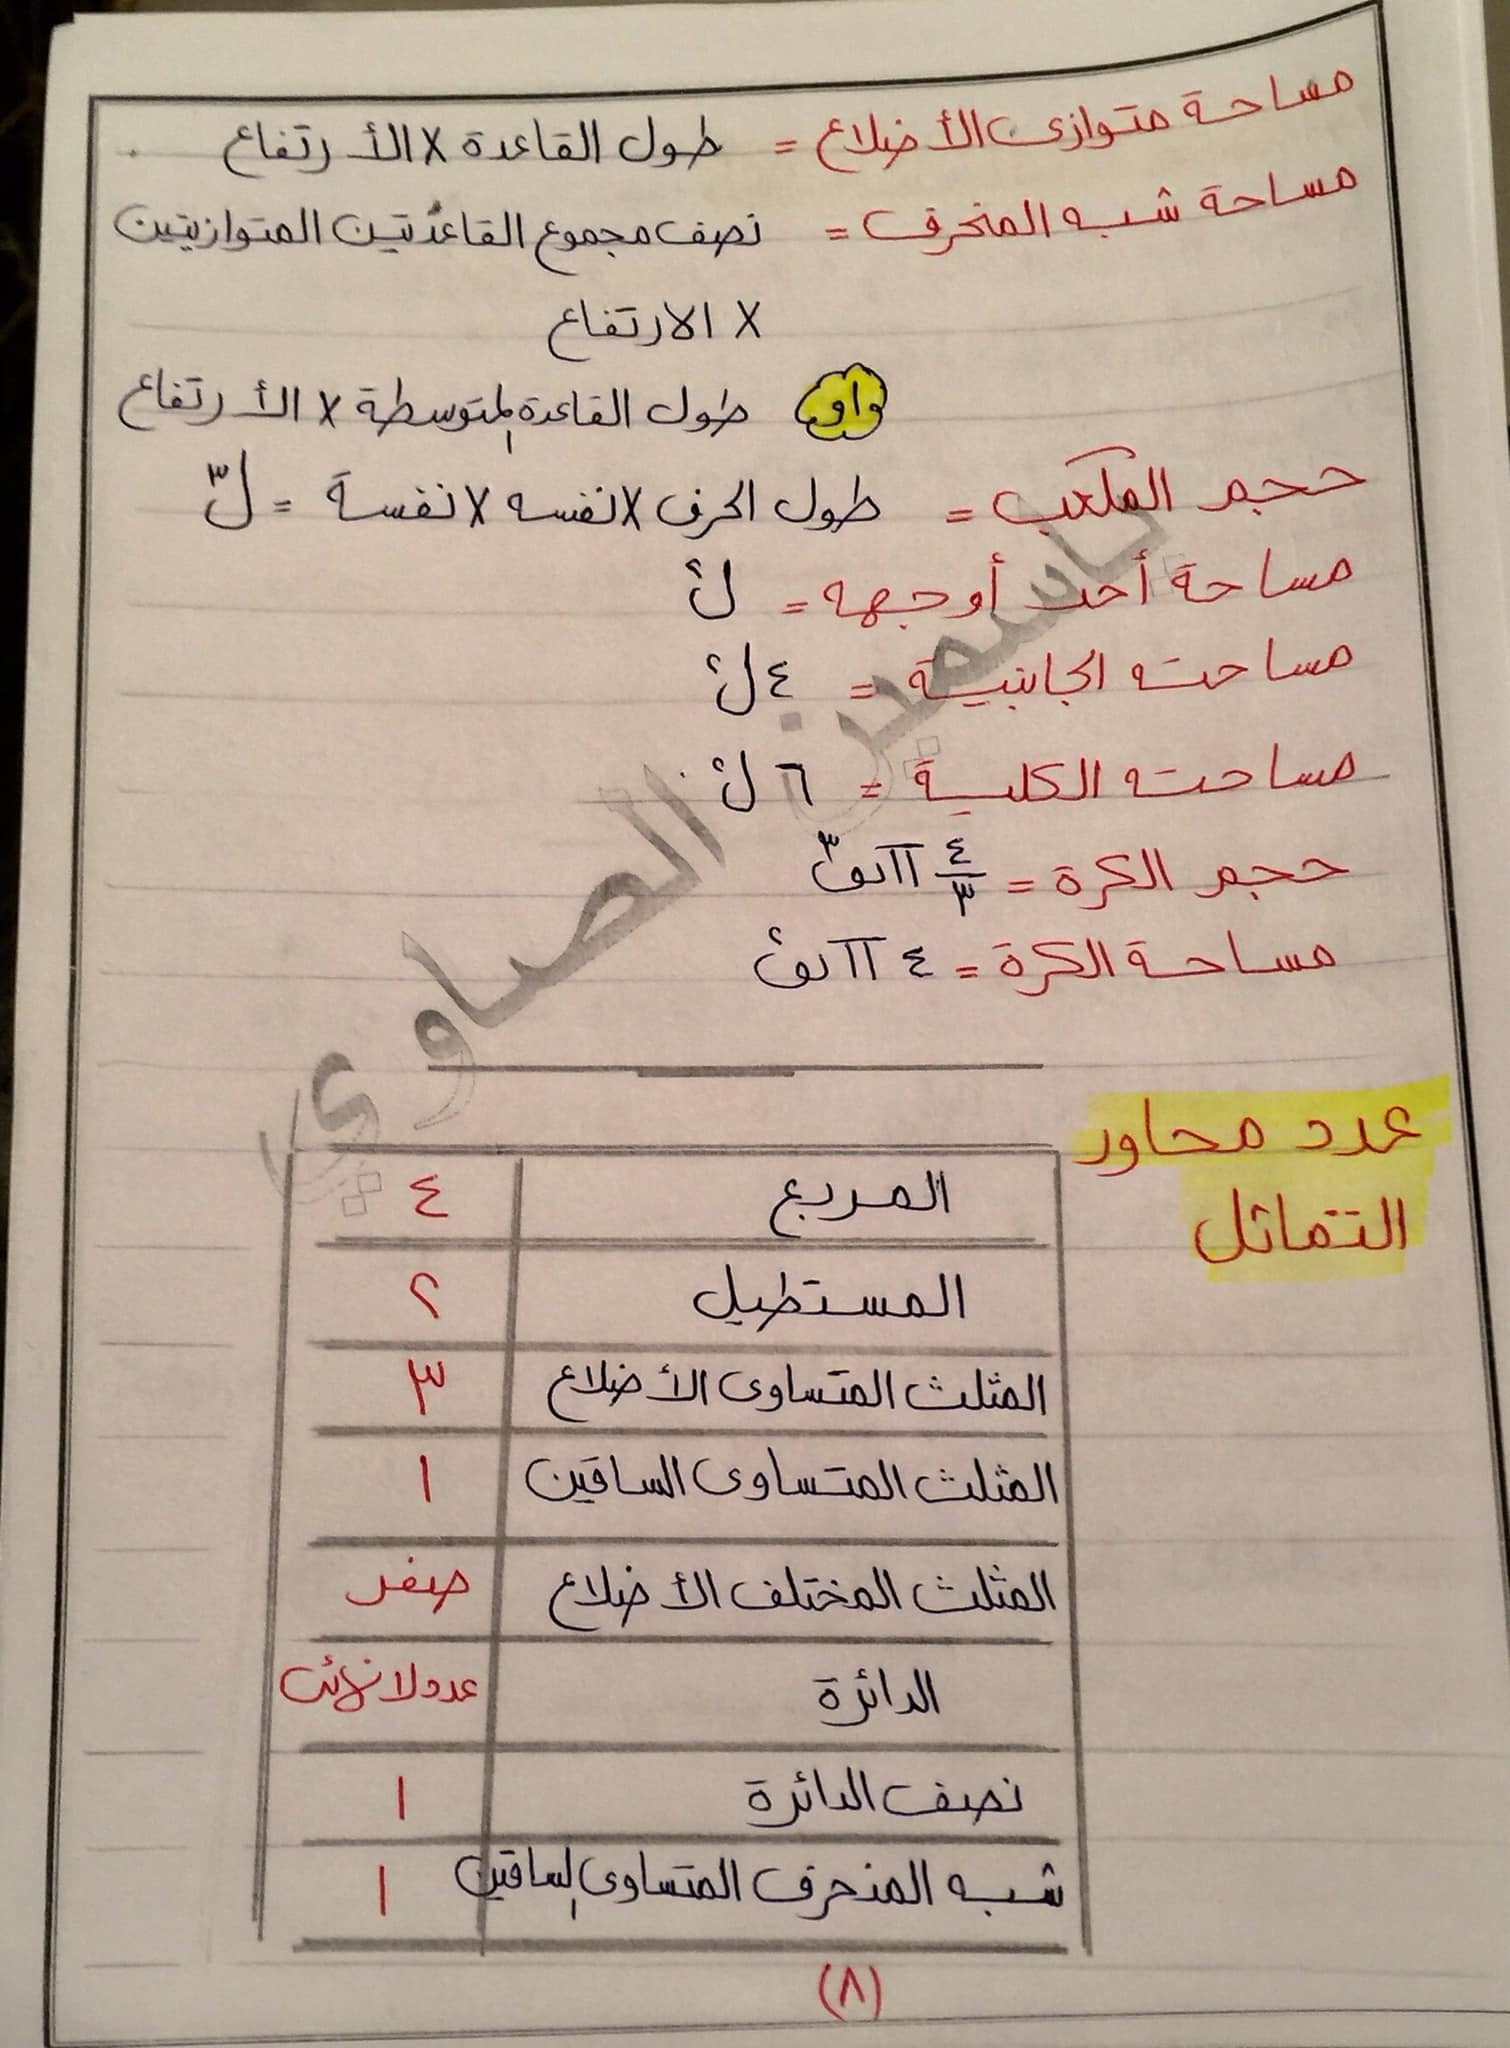 مساحة متوازى الأضلاع = طول القاعدة × الأرتفاع
مساحة شبه المنحرف = نصف مجموع القاعدتين المتوازيتين
× الارتفاع
أو طول القاعدة المتوسطة × الأرتفاع
حجم المكعب = طول الحرف × نفسه × نفسة = ل٣
مساحة أحد أوجهه = ل٢
مساحته الجانبية = ٤ ل٢
مساحته الكلية = ٦ ل٢
حجم الكرة = ٤/٣ π نق٣
مساحة الكرة = ٤ π نق٢
ياسمين الصاوي
عدد محاور
التماثل
المربع ٤
المستطيل ٢
المثلث المتساوى الأضلاع ٣
المثلث المتساوى الساقين ١
المثلث المختلف الأضلاع صفر
الدائرة عدد لا نهائى
نصف الدائرة ١
شبه المنحرف المتساوى الساقين ١
(٨)